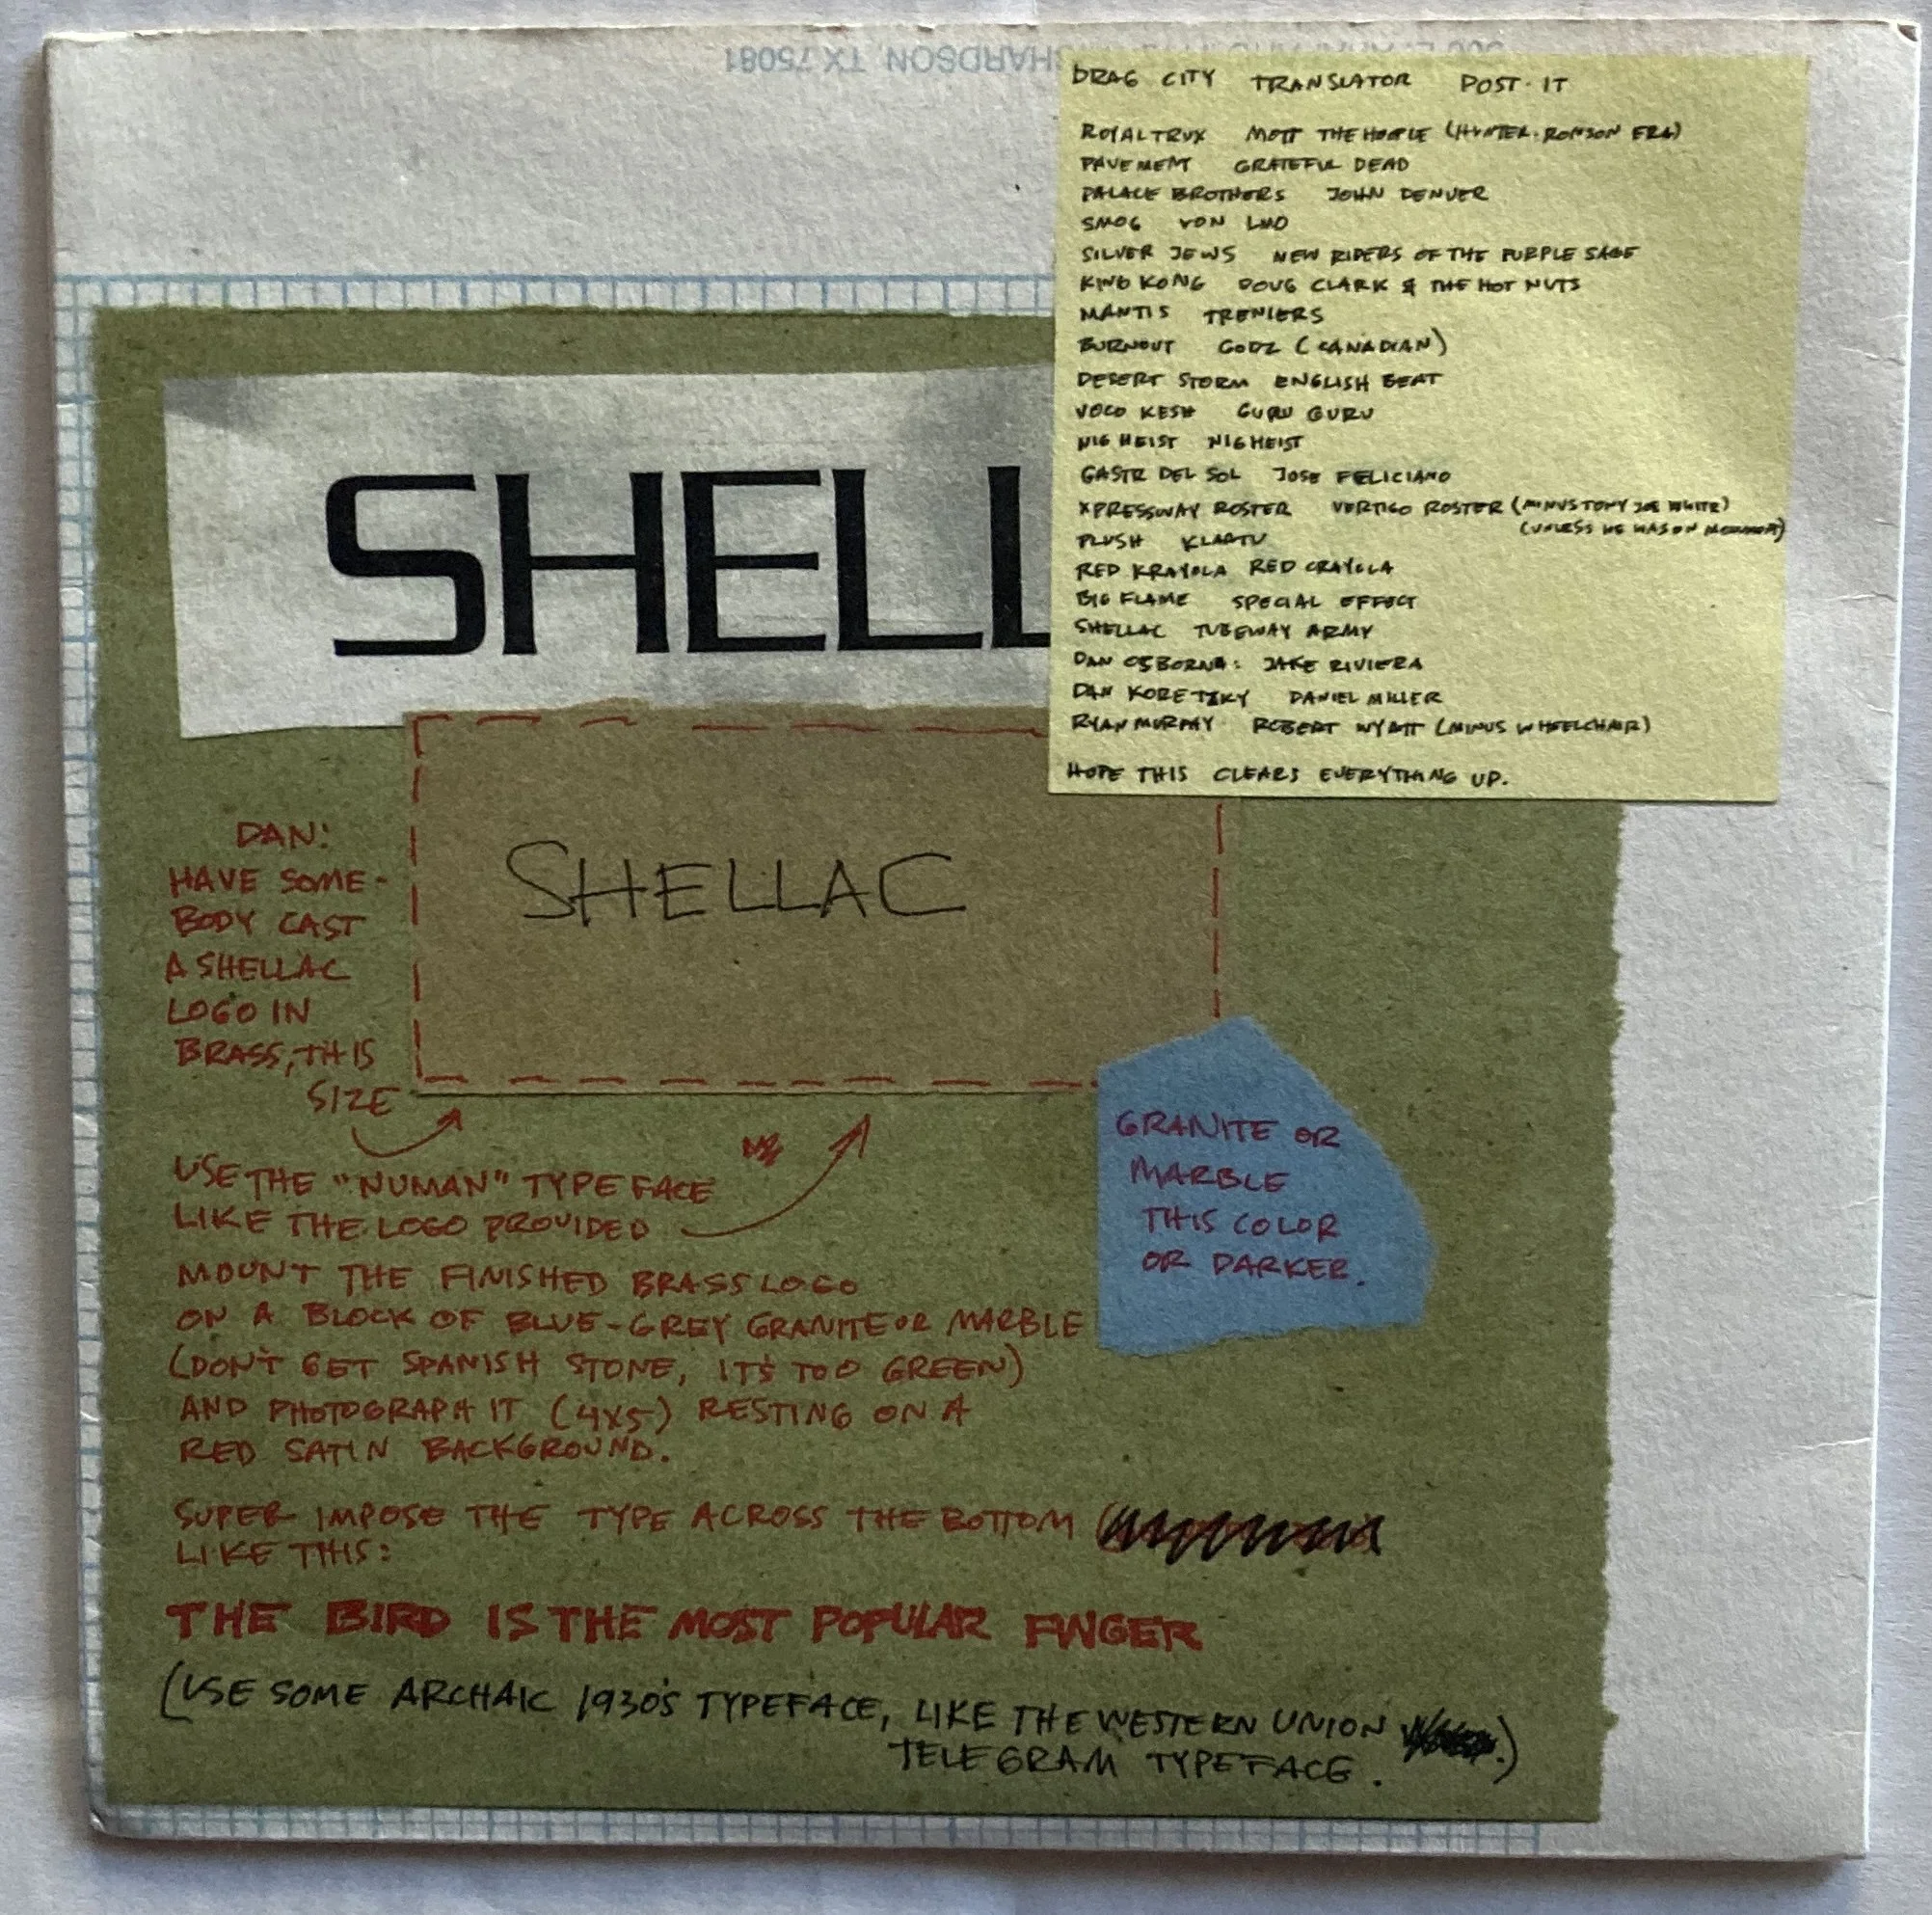 HARDSON, TX 75081
DRAG CITY TRANSLATOR POST-IT
ROYAL TRUX MOTT THE HOOPLE (HUNTER-RONSON ERA)
PAVEMENT GRATEFUL DEAD
PALACE BROTHERS JOHN DENVER
SMOG VON LMO
SILVER JEWS NEW RIDERS OF THE PURPLE SAGE
KING KONG DOUG CLARK & THE HOT NUTS
MANTIS TRENIERS
BURNOUT GODZ (CANADIAN)
DESERT STORM ENGLISH BEAT
VOCO KESH GURU GURU
NIG HEIST NIG HEIST
GASTR DEL SOL JOSE FELICIANO
XPRESSWAY ROSTER VERTIGO ROSTER (MINUS TONY JOE WHITE)
(UNLESS HE WAS ON
PLUSH KLAATU
RED KRAYOLA RED CRAYOLA
BIG FLAME SPECIAL EFFECT
SHELLAC TUBEWAY ARMY
DAN OSBORNA: JAKE RIVIERA
DAN KORETZKY DANIEL MILLER
RYAN MURPHY ROBERT WYATT (MINUS WHEELCHAIR)
HOPE THIS CLEARS EVERYTHING UP.
SHELL
SHELLAC
DAN:
HAVE SOME-
BODY CAST
A SHELLAC
LOGO IN
BRASS, THIS
SIZE
USE THE "NUMAN" TYPEFACE
LIKE THE LOGO PROVIDED
MOUNT THE FINISHED BRASS LOGO
ON A BLOCK OF BLUE-GREY GRANITE OR MARBLE
(DON'T GET SPANISH STONE, IT'S TOO GREEN)
AND PHOTOGRAPH IT (4X5) RESTING ON A
RED SATIN BACKGROUND.
GRANITE OR
MARBLE
THIS COLOR
OR DARKER.
SUPER IMPOSE THE TYPE ACROSS THE BOTTOM
LIKE THIS:
THE BIRD IS THE MOST POPULAR FINGER
(USE SOME ARCHAIC 1930'S TYPEFACE, LIKE THE WESTERN UNION .)
TELEGRAM TYPEFACE.